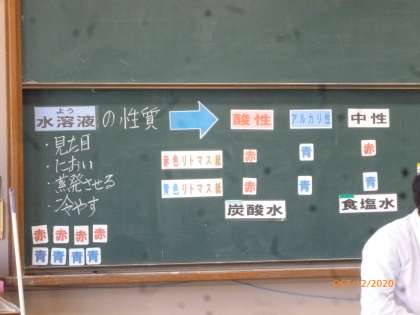 よう
水溶液の性質
・見た目
・におい
・蒸発させる
・冷やす
赤 赤 赤 赤
青 青 青 青
酸性 アルカリ性 中性
赤色リトマス紙 赤 青 赤
青色リトマス紙 赤 青 青
炭酸水 食塩水
OCT/12/2020